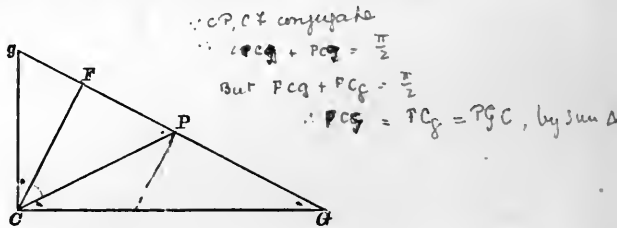 ∵ CP, CF conjugate
∴ PCg + PCG = π/2
But FCG + FCg = π/2
∴ PCG = FCg = PGC, by sim Δ
g
F
P
C
G